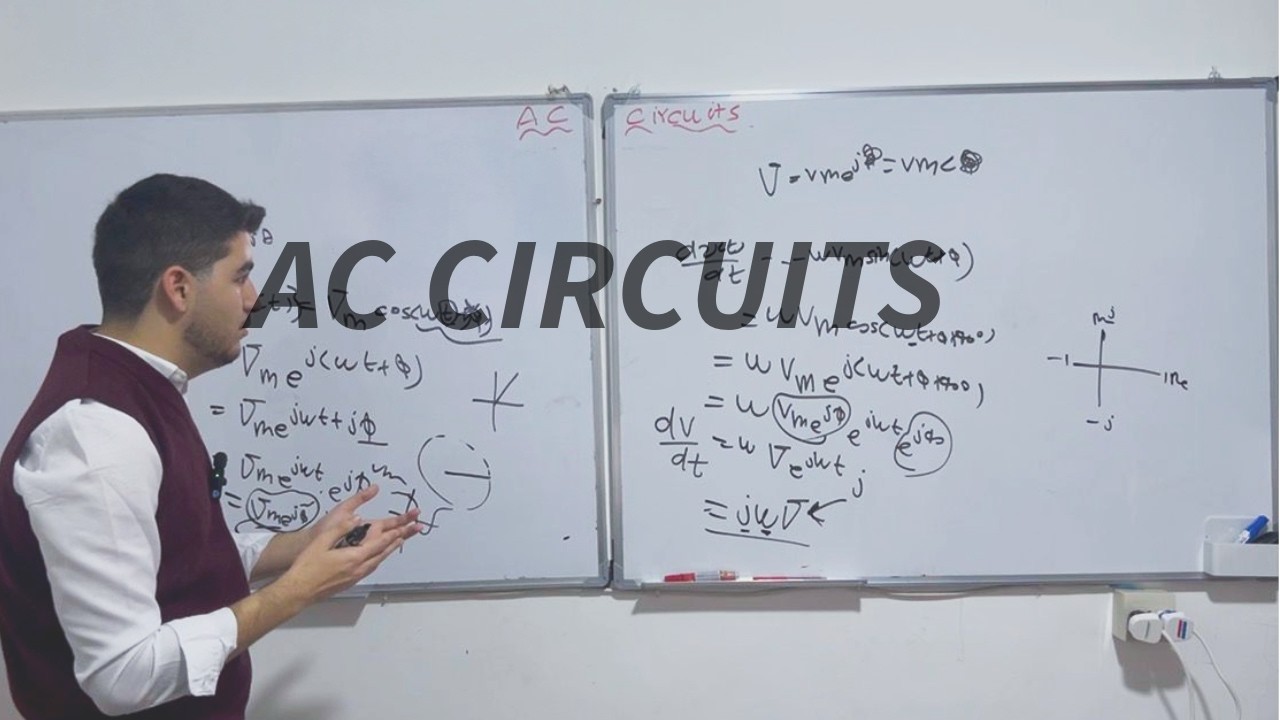 AC Circuits
AC CIRCUITS
jθ
= Vm cos(ωt+ϕ)
Vm e^j(ωt+ϕ)
= Vm e^jωt+jϕ
Vm e^jωt · e^jϕ
= Vm e^jϕ
V = Vm e^j = Vm
dv(t)/dt = -ωVm sin(ωt+ϕ)
= ωVm cos(ωt+ϕ+90°)
= ωVm e^j(ωt+ϕ+90°)
= ω Vm e^jϕ e^jωt e^j90
dv/dt = ω V e^jωt j
= jωV
mj
-1
1 Re
-j